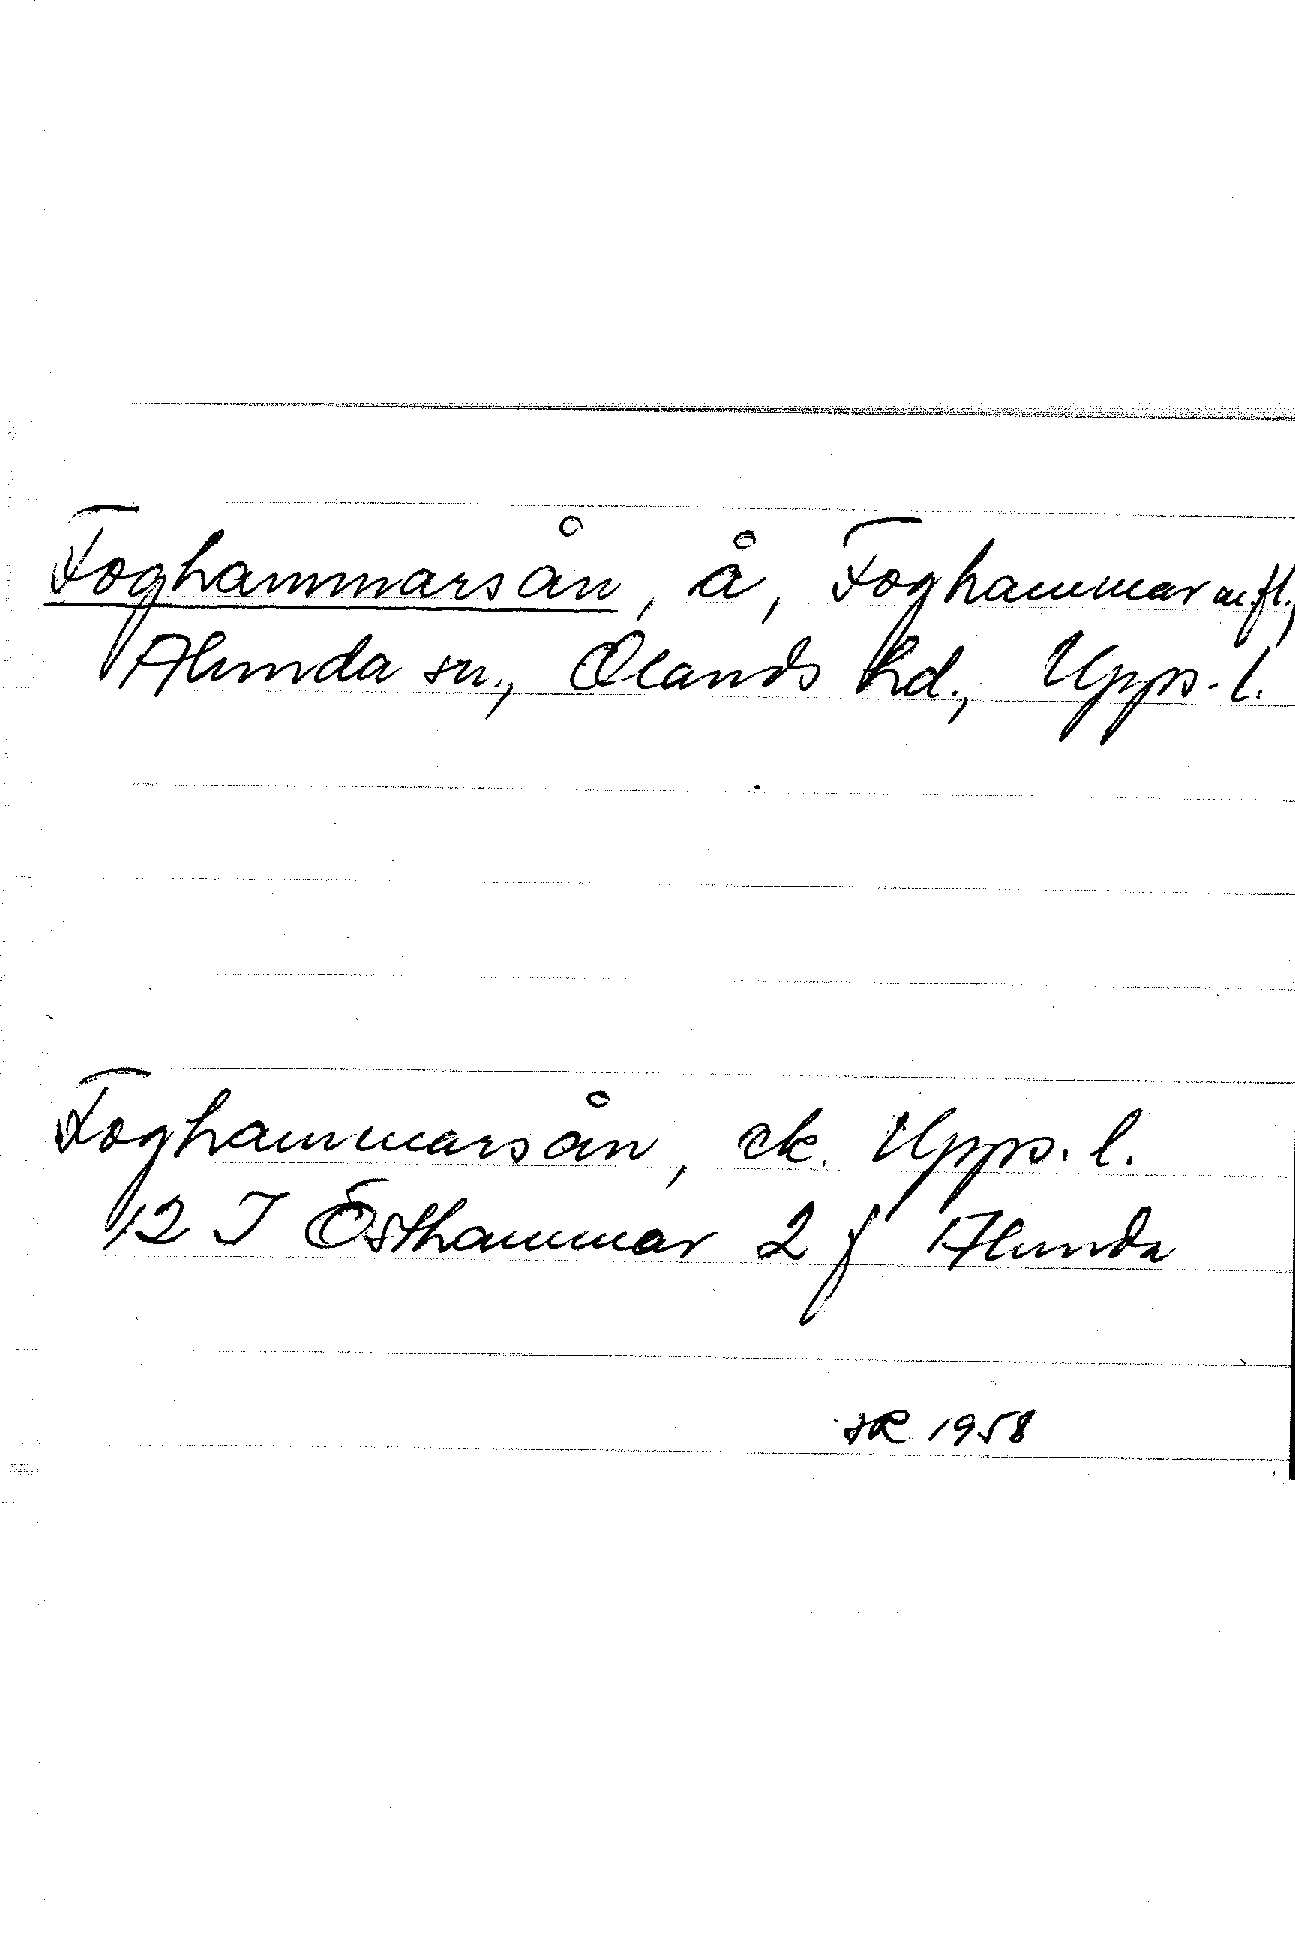 Foghammarsån, å, Foghammar m.fl.,
Alunda sn., Olands hd., Upps. l.
Foghammarsån, ek. Upps. l.
12 I Östhammar 2 f Alunda
SR 1958